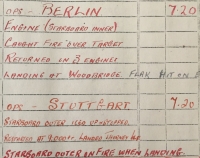 OPS - BERLIN. 7.20
ENGINE (STARBOARD INNER)
CAUGHT FIRE OVER TARGET
RETURNED ON 3 ENGINES
LANDING AT WOODBRIDGE. FLAK HIT ON
OPS - STUTTGART. 7.20
STARBOARD OUTER
LANDED
STARBOARD OUTER ON FIRE WHEN LANDING.